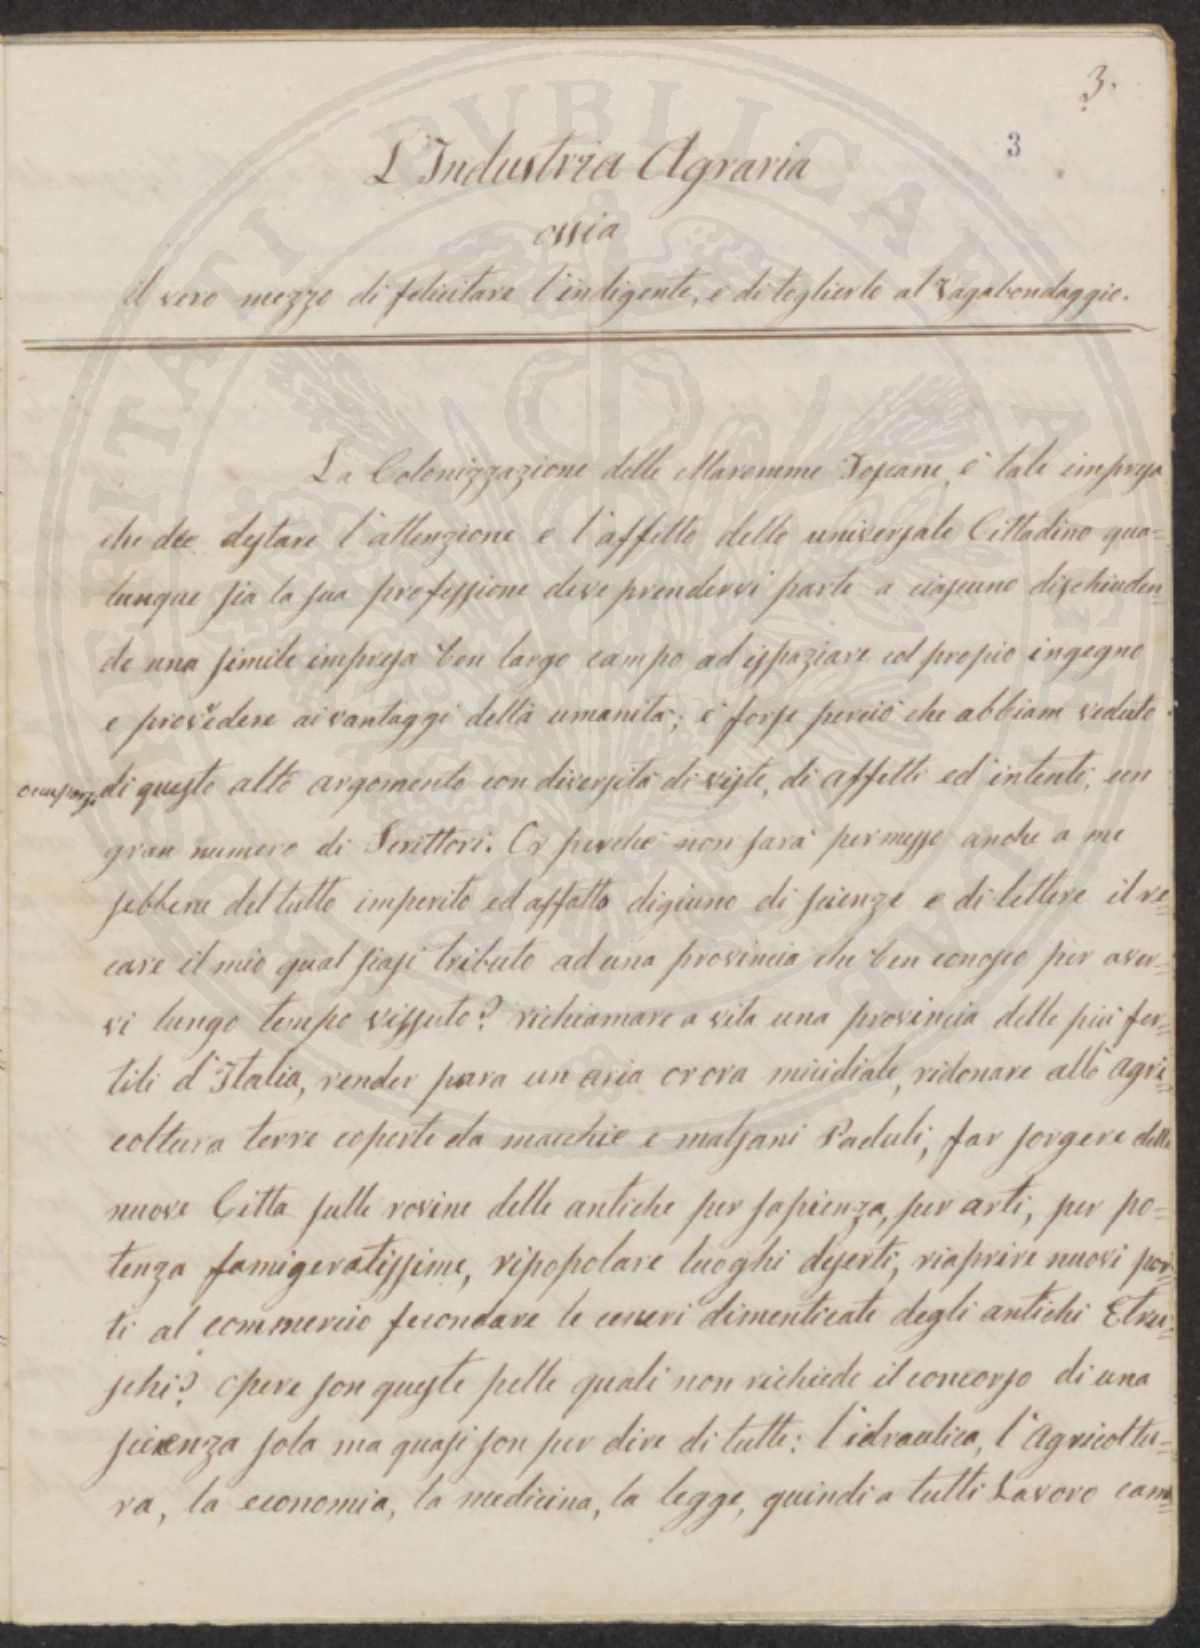 3.
3
L'Industria Agraria
ossia
il vero mezzo di felicitare l'indigente, e di toglierlo al Vagabondaggio.
La Colonizzazione delle Maremme Toscane, è tale impresa
che dee destare l'attenzione e l'affetto dello universale Cittadino qua=
lunque sia la sua professione deve prendervi parte a ciascuno dischiuden=
do una simile impresa ben largo campo ad ispaziare col propio ingegno
e provvedere ai vantaggi della umanità; è forse perciò che abbiam veduto
occuparsi di questo alto argomento con diversità di viste, di affetti ed intenti, un
gran numero di Scrittori. Or perchè non sarà permesso anche a me
sebbene del tutto imperito ed affatto digiuno di scienze e di lettere il re=
care il mio qual siasi tributo ad una provincia che ben conosco per aver=
vi lungo tempo vissuto? richiamare a vita una provincia delle più fer=
tili d'Italia, render pura un'aria or ora micidiale, ridonare allo Agri=
coltura terre coperte da macchie e malsani Paduli, far sorgere delle
nuove Citta sulle rovine delle antiche per sapienza, per arti, per po=
tenza famigeratissime, ripopolare luoghi deserti, riaprire nuovi por=
ti al commercio fecondare le ceneri dimenticate degli antichi Etru=
schi? Opere son queste pelle quali non richiede il concorso di una
scienza sola ma quasi son per dire di tutte: l'idraulica, l'Agricoltu=
ra, la economia, la medicina, la legge, quindi a tutti Lavoro cam=
PVBLICAE
VTILITATI